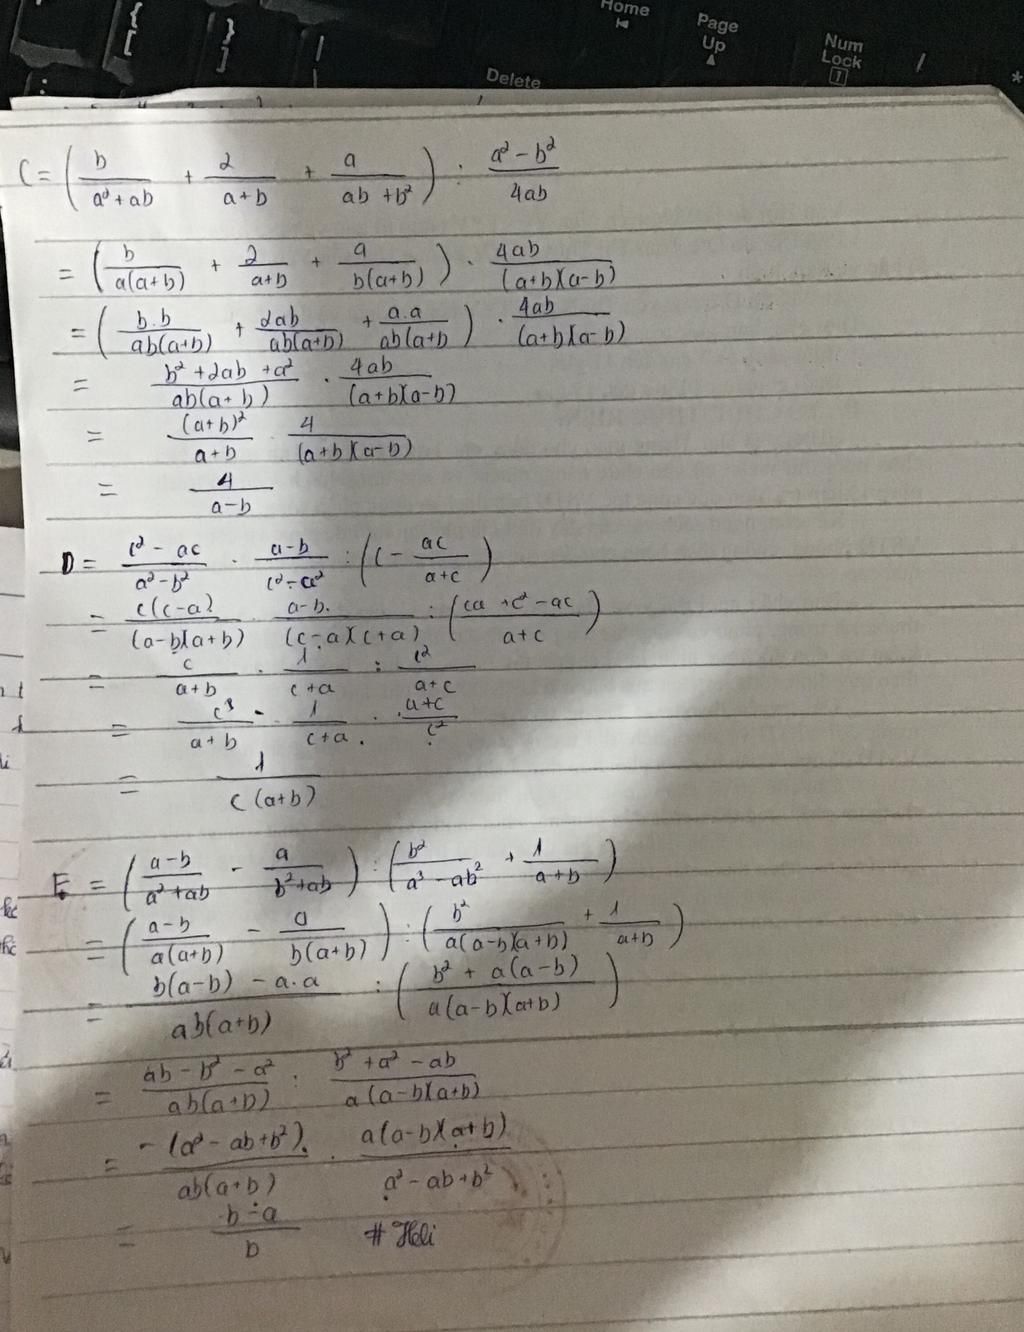 Home
Page
Up
Num
Lock
Delete
{
[
}
]
C = ( b/(a²+ab) + 2/(a+b) + a/(ab+b²) ) : (a²-b²)/(4ab)
= ( b/(a(a+b)) + 2/(a+b) + a/(b(a+b)) ) . 4ab/((a+b)(a-b))
= ( b.b/(ab(a+b)) + 2ab/(ab(a+b)) + a.a/(ab(a+b)) ) . 4ab/((a+b)(a-b))
= (b²+2ab+a²)/(ab(a+b)) . 4ab/((a+b)(a-b))
= (a+b)²/(a+b) . 4/((a+b)(a-b))
= 4/(a-b)
D = (c²-ac)/(a²-b²) . (a-b)/(c²-a²) : (c - ac/(a+c))
= c(c-a)/((a-b)(a+b)) . (a-b)/((c-a)(c+a)) : ((ca+c²-ac)/(a+c))
= c/(a+b) . 1/(c+a) : c²/(a+c)
= c/(a+b) . 1/(c+a) . (a+c)/c²
= 1/(c(a+b))
E = ( (a-b)/(a²+ab) - a/(b²+ab) ) : ( b²/(a³-ab²) + 1/(a+b) )
= ( (a-b)/(a(a+b)) - a/(b(a+b)) ) : ( b²/(a(a-b)(a+b)) + 1/(a+b) )
= (b(a-b) - a.a)/(ab(a+b)) : ( (b² + a(a-b))/(a(a-b)(a+b)) )
= (ab-b²-a²)/(ab(a+b)) : (b²+a²-ab)/(a(a-b)(a+b))
= -(a²-ab+b²)/(ab(a+b)) . a(a-b)(a+b)/(a²-ab+b²)
= (b-a)/b # Heli